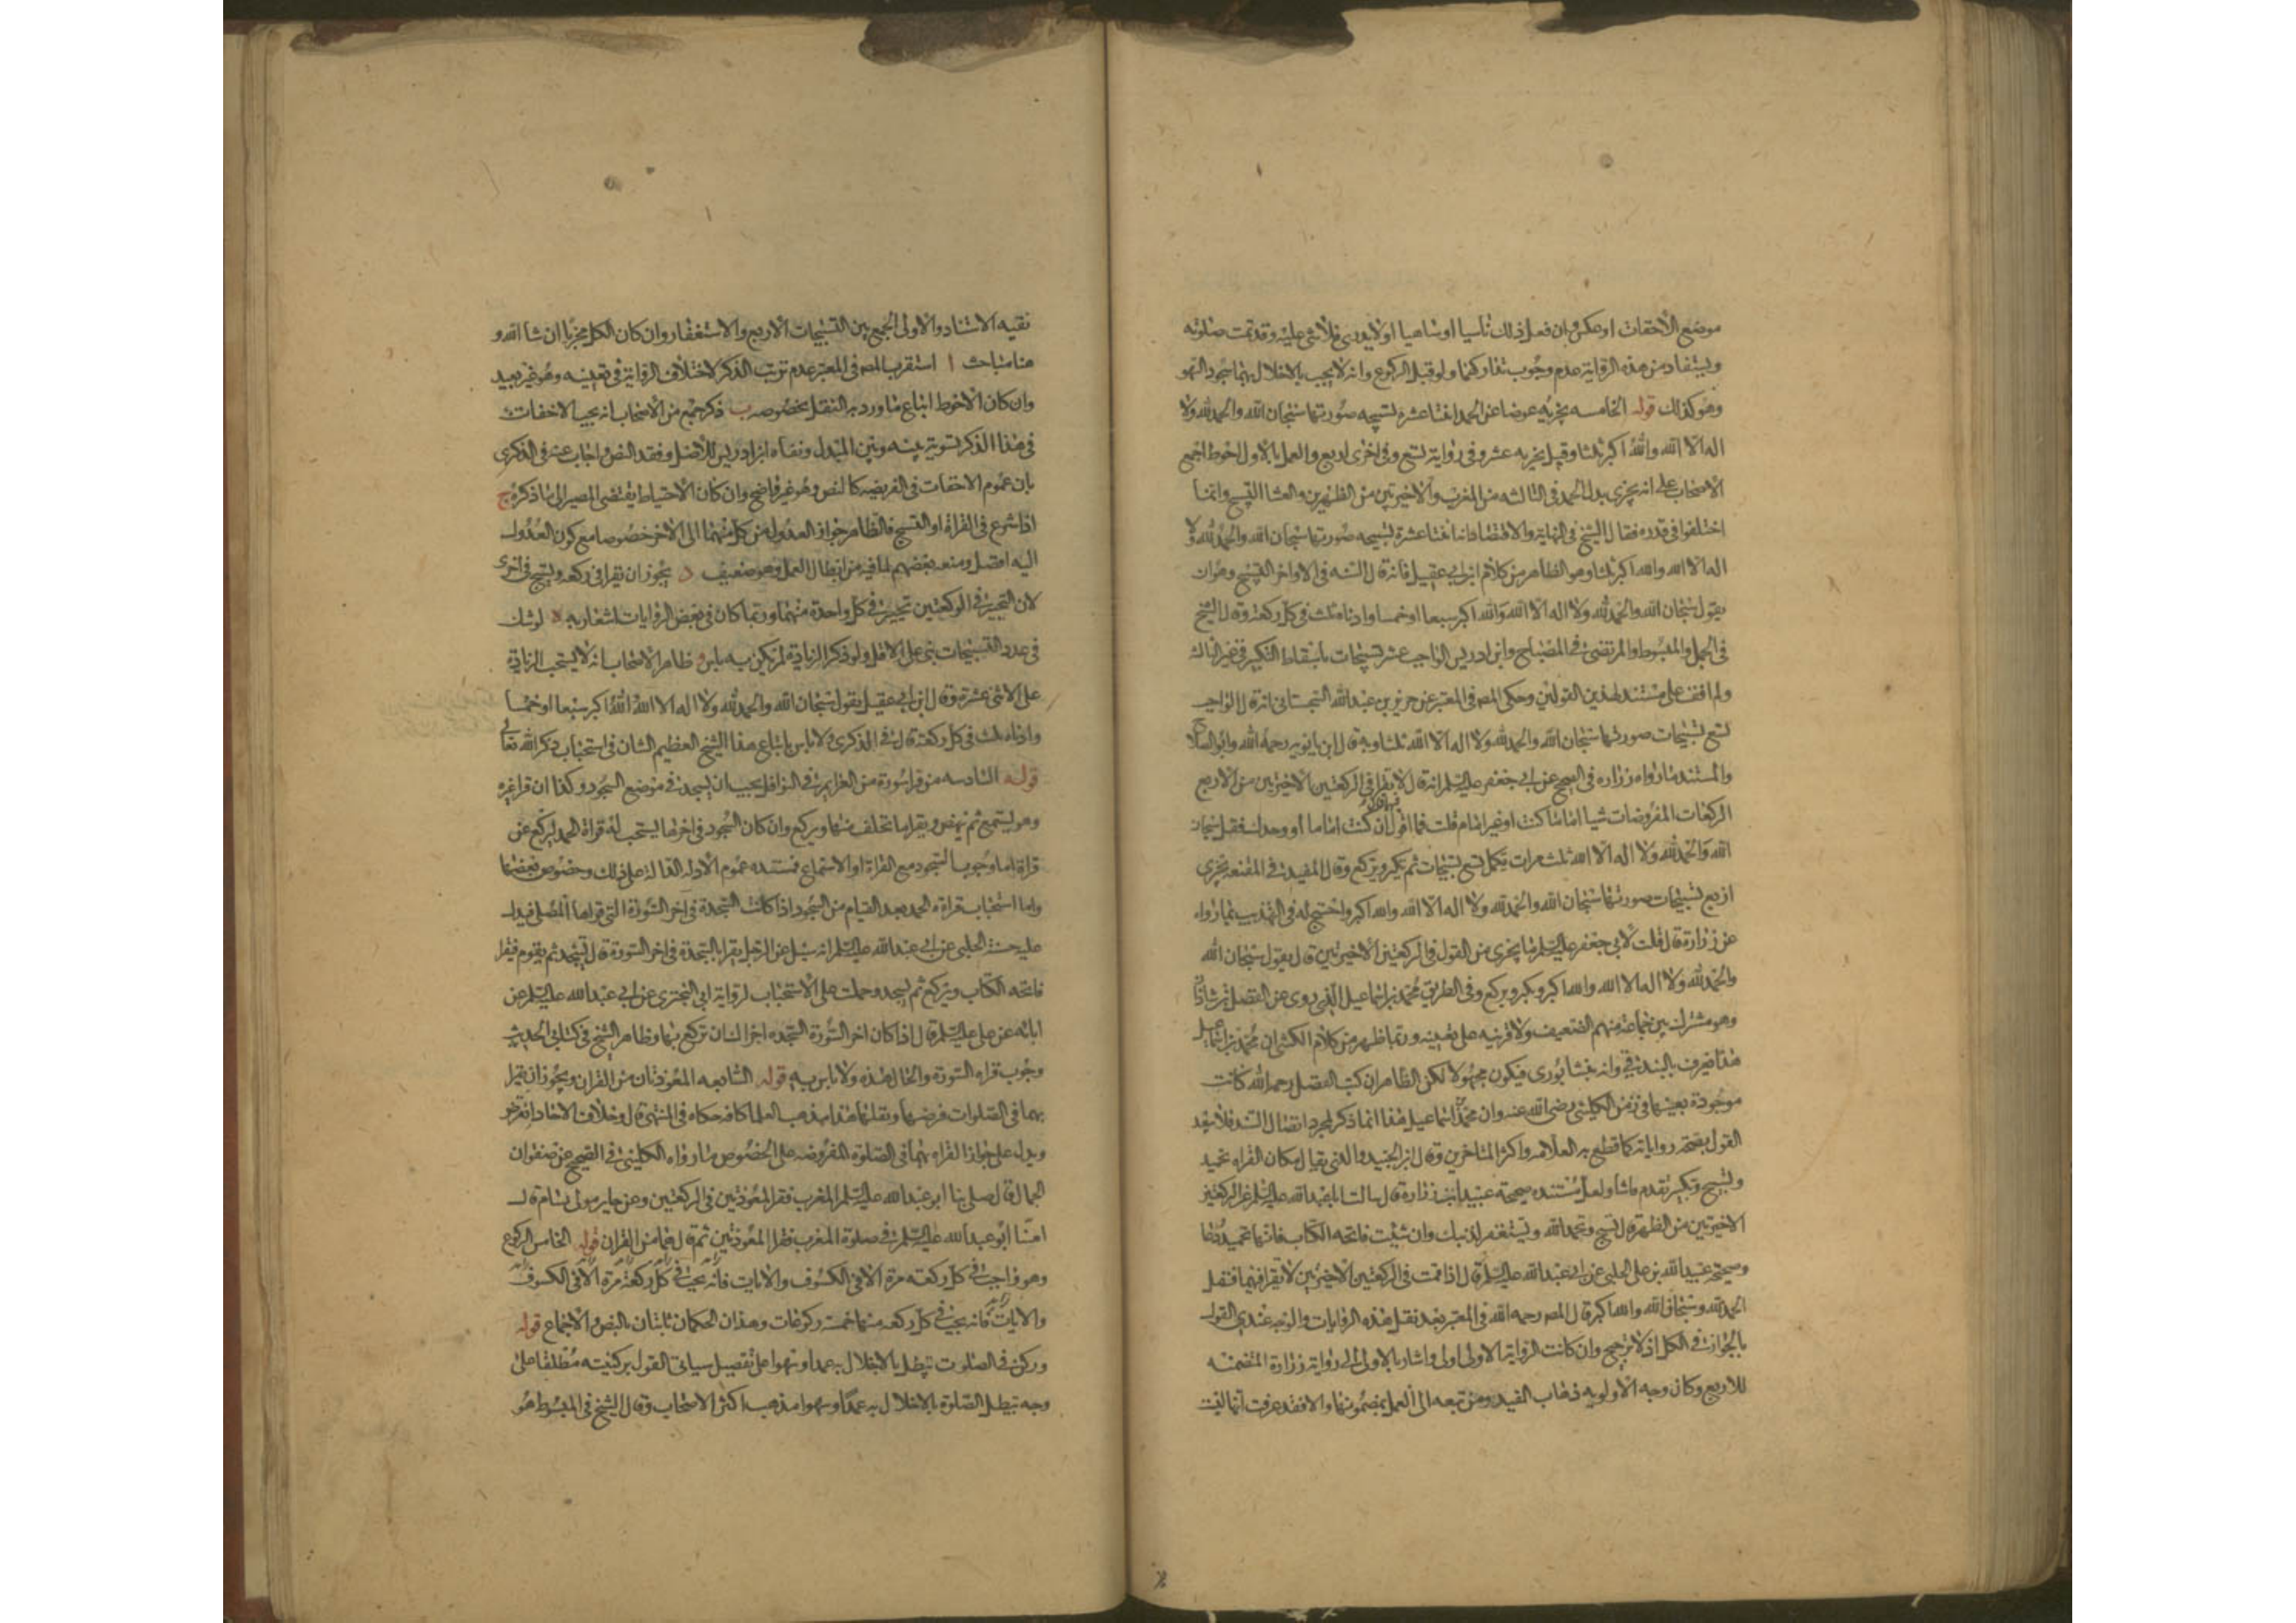 موضع الاخفات او عكس وان فعل ذلك ناسيا او ساهيا او لا يدرى فلا شى عليه وقد تمت صلوته
ويستفاد من هذه الرواية عدم وجوب تداركهما ولو قبل الركوع وانه لا يجب بالاخلال بهما سجود السهو
وهو كذلك قوله الخامسه يجزيه عوضا عن الحمد اثنتا عشرة تسبيحه صورتها سبحان الله والحمد لله ولا
اله الا الله والله اكبر ثلثا وقيل يجزيه عشر وفى رواية تسع وفى اخرى اربع والعمل بالاول احوط اجمع
الاصحاب على انه يجزى بدل الحمد فى الثالثه من المغرب والاخيرتين من الظهرين والعشا التسبيح وانما
اختلفوا فى قدره فقال الشيخ فى النهاية والاقتصاد انها اثنتا عشرة تسبيحه صورتها سبحان الله والحمد لله ولا
اله الا الله والله اكبر ثلثا وهو الظاهر من كلام ابن ابى عقيل فانه قال السنه فى الاواخر التسبيح وهو ان
يقول سبحان الله والحمد لله ولا اله الا الله والله اكبر سبعا او خمسا وادناه ثلث فى كل ركعة وقال الشيخ
فى الجمل والمبسوط والمرتضى فى المصباح وابن ادريس الواجب عشر تسبيحات باسقاط التكبير فى غير الثالثه
ولم اقف على مستند لهذين القولين وحكى المص فى المعتبر عن حريز بن عبد الله السجستانى انه قال الواجب
تسع تسبيحات صورتها سبحان الله والحمد لله ولا اله الا الله ثلثا وبه قال ابن بابويه رحمه الله وابو الصلاح
والمستند ما رواه زراره فى الصحيح عن ابى جعفر عليه السلم انه قال لا تقرا فى الركعتين الاخيرتين من الاربع
الركعات المفروضات شيا اماما كنت او غير امام قلت فما اقول فيهما قال ان كنت اماما او وحدك فقل سبحان
الله والحمد لله ولا اله الا الله ثلث مرات تكمل تسع تسبيحات ثم تكبر وتركع وقال المفيد فى المقنعه يجزى
اربع تسبيحات صورتها سبحان الله والحمد لله ولا اله الا الله والله اكبر واحتج له فى التهذيب بما رواه
عن زرارة قال قلت لابى جعفر عليه السلم ما يجزى من القول فى الركعتين الاخيرتين قال يقول سبحان الله
والحمد لله ولا اله الا الله والله اكبر وتكبر وتركع وفى الطريق محمد بن اسماعيل الذى روى عن الفضل بن شاذان
وهو مشترك بين جماعة منهم الضعيف ولا قرينه على تعيينه وربما ظهر من كلام الكشى ان محمد بن اسماعيل
هذا يعرف بالبندقى وانه نيشابورى فيكون مجهولا لكن الظاهر ان كتب الفضل رحمه الله كانت
موجودة بعينها فى زمن الكلينى رضى الله عنه وان محمد بن اسماعيل هذا انما ذكر لمجرد اتصال السند فلا يبعد
القول بصحة رواياته كما قطع به العلامه واكثر المتاخرين وقال ابن الجنيد والذى يقال مكان القراه تحميد
وتسبيح وتكبير يقدم ما شا ولعل مستنده صحيحة عبيد ابن زرارة قال سالت ابا عبد الله عليه السلم عن الركعتين
الاخيرتين من الظهر قال تسبح وتحمد الله وتستغفر لذنبك وان شئت فاتحه الكتاب فانها تحميد ودعا
وصحيحة عبيد الله بن على الحلبى عن ابى عبد الله عليه السلم قال اذا قمت فى الركعتين الاخيرتين لا تقرا فيهما فقل
الحمد لله وسبحان الله والله اكبر قال المص رحمه الله فى المعتبر بعد نقل هذه الروايات والوجه عندى القول
بالجواز فى الكل اذ لا ترجيح وان كانت الرواية الاولى اولى واشار بالاولى الى رواية زرارة المتضمنه
للاربع وكان وجه الاولويه ذهاب المفيد ومن تبعه الى العمل بمضمونها والا فقد عرفت انها ليست
نقيه الاسناد والاولى الجمع بين التسبيحات الاربع والاستغفار وان كان الكل مجزيا ان شا الله و
هنا مباحث ا استقرب المص فى المعتبر عدم ترتب الذكر لاختلاف الرواية فى تعيينه وهو غير بعيد
وان كان الاحوط اتباع ما ورد به النقل بخصوصه ب ذكر جمع من الاصحاب انه يجب الاخفات
فى هذا الذكر تسوية بينه وبين المبدل ونفاه ابن ادريس للاصل وفقد النص واجاب عنه فى الذكرى
بان عموم الاخفات فى الفريضه كالنص وهو غير واضح وان كان الاحتياط يقتضى المصير الى ما ذكره ج
اذا شرع فى القراة او التسبيح فالظاهر جواز العدول من كل منهما الى الاخر خصوصا مع كون المعدول
اليه افضل ومنعه بعضهم لما فيه من ابطال العمل وهو ضعيف د يجوز ان يقرا فى ركعه ويسبح فى اخرى
لان التخيير فى الركعتين تخيير فى كل واحدة منهما وربما كان فى بعض الروايات اشعار به ه لو شك
فى عدد التسبيحات بنى على الاقل ولو ذكر الزيادة لم يكن به باس و ظاهر الاصحاب انه لا يستحب الزيادة
على الاثنى عشرة وقال ابن ابى عقيل يقول سبحان الله والحمد لله ولا اله الا الله والله اكبر سبعا او خمسا
وادناه ثلث فى كل ركعة قال فى الذكرى ولا باس باتباع هذا الشيخ العظيم الشان فى استحباب ذكر الله تعالى
قوله السادسه من قرا سورة من العزايم فى النوافل يجب ان يسجد فى موضع السجود وكذا ان قرا غيره
وهو يستمع ثم ينهض ويقرا ما تخلف منها ويركع وان كان السجود فى اخرها يستحب له قراة الحمد ليركع عن
قراة اما وجوب السجود مع القراة او الاستماع فمستنده عموم الادله الدالة على ذلك وخصوص بعضها
واما استحباب قراءة الحمد بعد القيام من السجود اذا كانت السجدة فى اخر السورة التى قراها المصلى فيدل
عليه حسنة الحلبى عن ابى عبد الله عليه السلم انه سئل عن الرجل يقرا بالسجدة فى اخر السورة قال يسجد ثم يقوم فيقرا
فاتحه الكتاب ويركع ثم يسجد وحملت على الاستحباب لرواية ابى البخترى عن ابى عبد الله عليه السلم عن
ابائه عن على عليه السلم قال اذا كان اخر السورة السجده اجزاك ان تركع بها وظاهر الشيخ فى كتابى الحديث
وجوب قراه السورة والحال هذه ولا باس به قوله السابعه المعوذتان من القران ويجوز ان يقرا
بهما فى الصلوات فرضها ونفلها هذا مذهب العلما كافه حكاه فى المنتهى قال وخلاف الاستاد انقرض
ويدل على جواز القراه بهما فى الصلوة المفروضه على الخصوص ما رواه الكلينى فى الصحيح عن صفوان
الجمال قال صلى بنا ابو عبد الله عليه السلم المغرب فقرا المعوذتين فى الركعتين وعن جابر مولى بسام قال
امنا ابو عبد الله عليه السلم فى صلوة المغرب فقرا المعوذتين ثم قال هما من القران قوله الخامس الركوع
وهو واجب فى كل ركعه مرة الا فى الكسوف والايات فانه يجب فى كل ركعة مرة الا فى الكسوف
والايات فانه يجب فى كل ركعه منها خمسه ركوعات وهذان الحكمان ثابتان بالنص والاجماع قوله
وركن فى الصلوت تبطل بالاخلال به عمدا وسهوا على تفصيل سياتى القول بركنيته مطلقا على
وجه تبطل الصلوة بالاخلال به عمدا وسهوا مذهب اكثر الاصحاب وقال الشيخ فى المبسوط هو